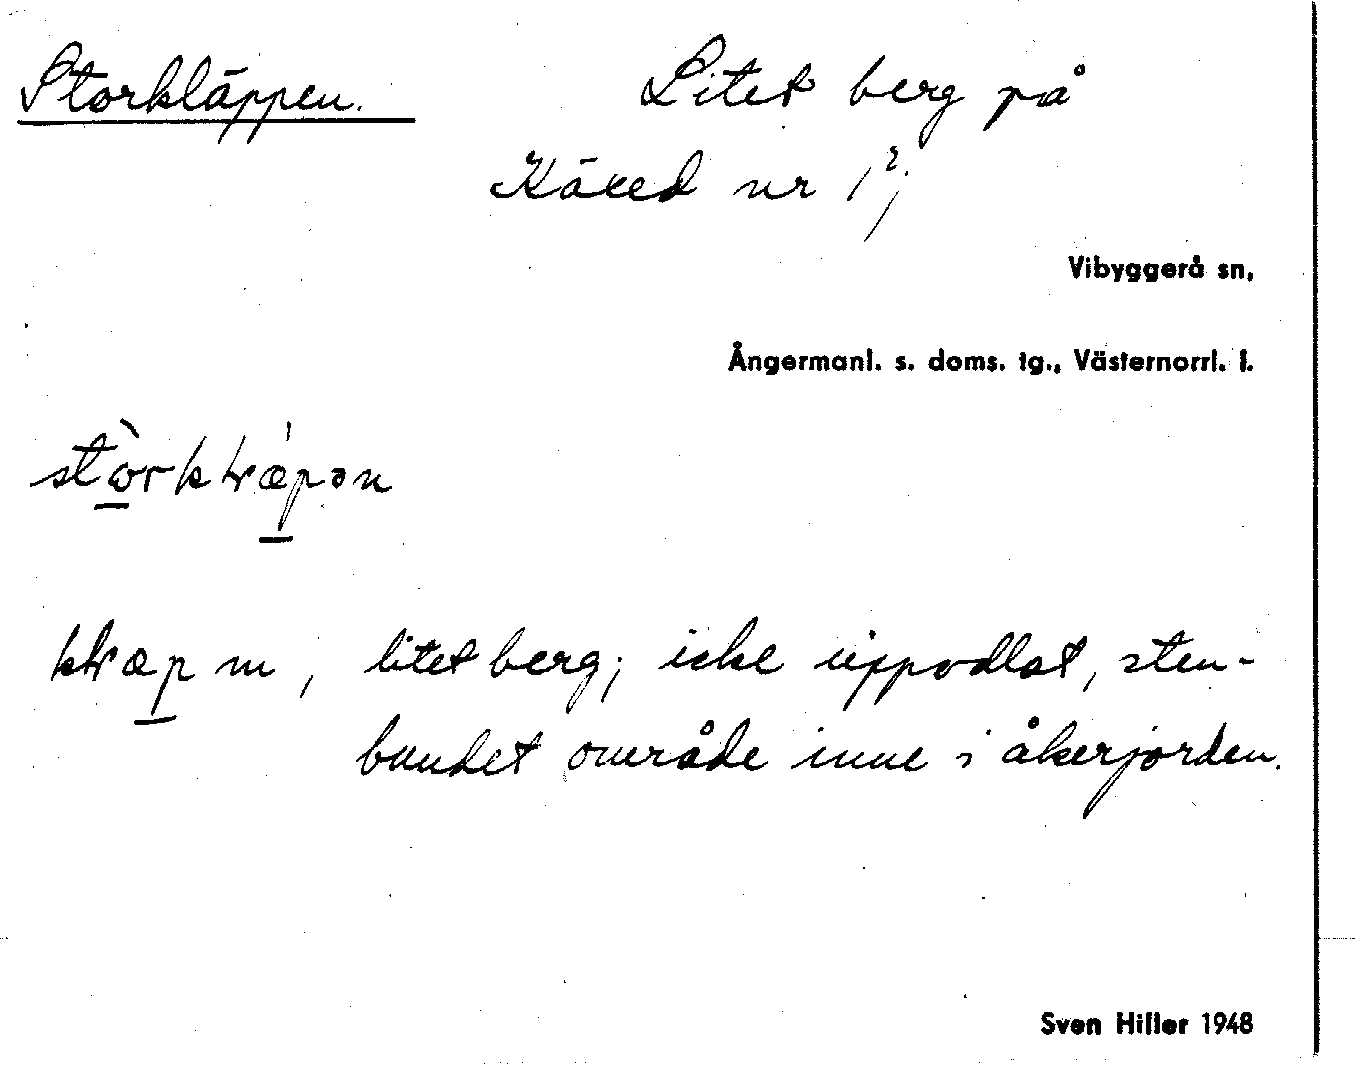 Storkläppen. Litet berg på
Käxed nr 1²;
Vibyggerå sn,
Ångermanl. s. doms. tg., Västernorrl. l.
litet berg; icke uppodlat, sten-
bundet område inne i åkerjorden.
Sven Hiller 1948